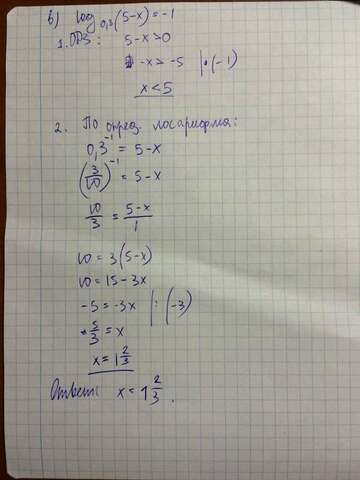 в) log₀,₃(5-x) = -1
1. ОДЗ: 5-x>0
-x > -5 | · (-1)
x < 5
2. По опред. логарифма:
0,3⁻¹ = 5-x
(3/10)⁻¹ = 5-x
10/3 = 5-x/1
10 = 3(5-x)
10 = 15-3x
-5 = -3x | : (-3)
5/3 = x
x = 1 2/3
Ответ: x = 1 2/3.